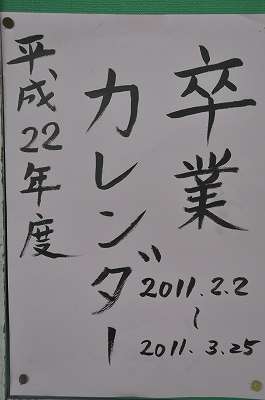 卒業
カレンダー
平成22年度
2011.2.2
~
2011.3.25